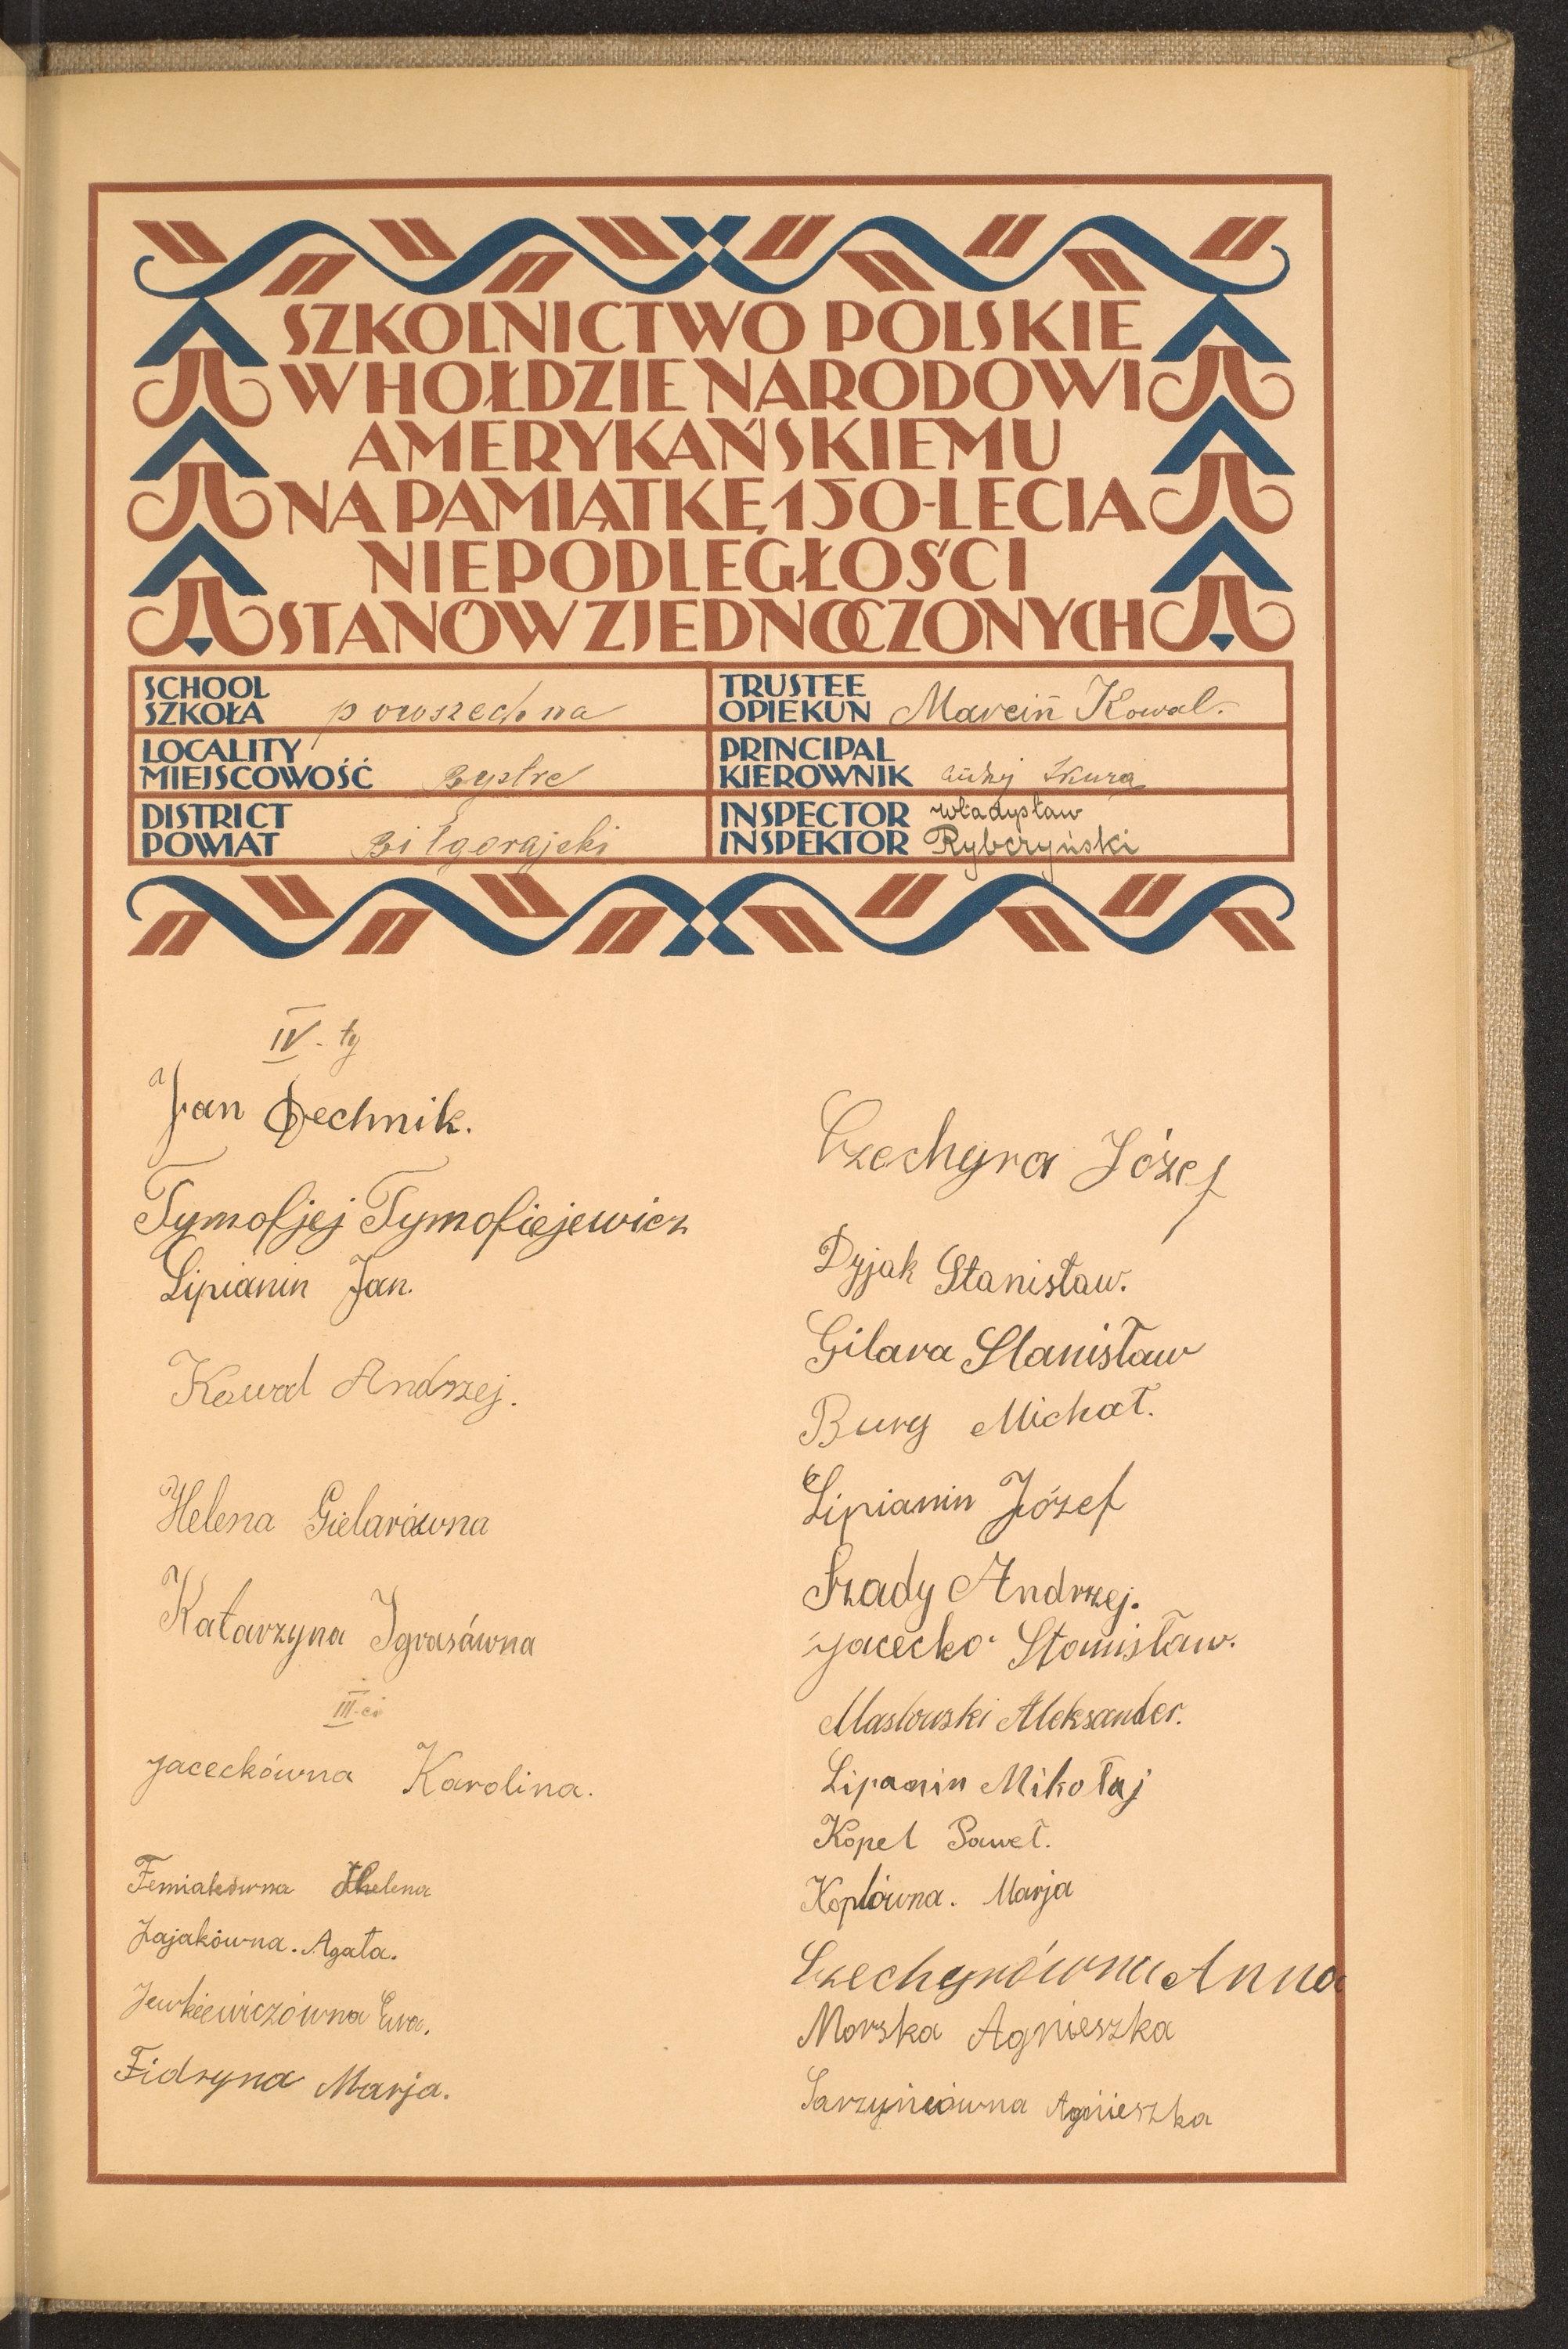 SZKOLNICTWO POLSKIE
W HOŁDZIE NARODOWI
AMERYKAŃSKIEMU
NA PAMIĄTKĘ 150-LECIA
NIEPODLEGŁOŚCI
STANÓW ZJEDNOCZONYCH
SCHOOL
SZKOŁA powszechna
TRUSTEE
OPIEKUN Marcin Kowal.
LOCALITY
MIEJSCOWOŚĆ Bystre
PRINCIPAL
KIEROWNIK Skura
DISTRICT
POWIAT Biłgorajski
INSPECTOR Władysław
INSPEKTOR Rybczyński
IV-ty
Jan Dechnik.
Tymofjej Tymofiejewicz
Lipianin Jan.
Kowal Andrzej.
Helena Gielarówna
Katarzyna Igrasówna
III-ci
Jaceckówna Karolina.
Femiakówna Helena
Zajakówna. Agata.
Jewkiewiczówna Ewa.
Fidryna Marja.
Czechyra Józef
Dyjak Stanisław.
Gilara Stanisław
Bury Michał.
Lipianin Józef
Szady Andrzej.
Jacecko Stanisław.
Masłowski Aleksander.
Lipanin Mikołaj
Kopel Paweł.
Koplówna. Marja
Czechyrówna Anna
Morska Agnieszka
Sarzyńcówna Agnieszka